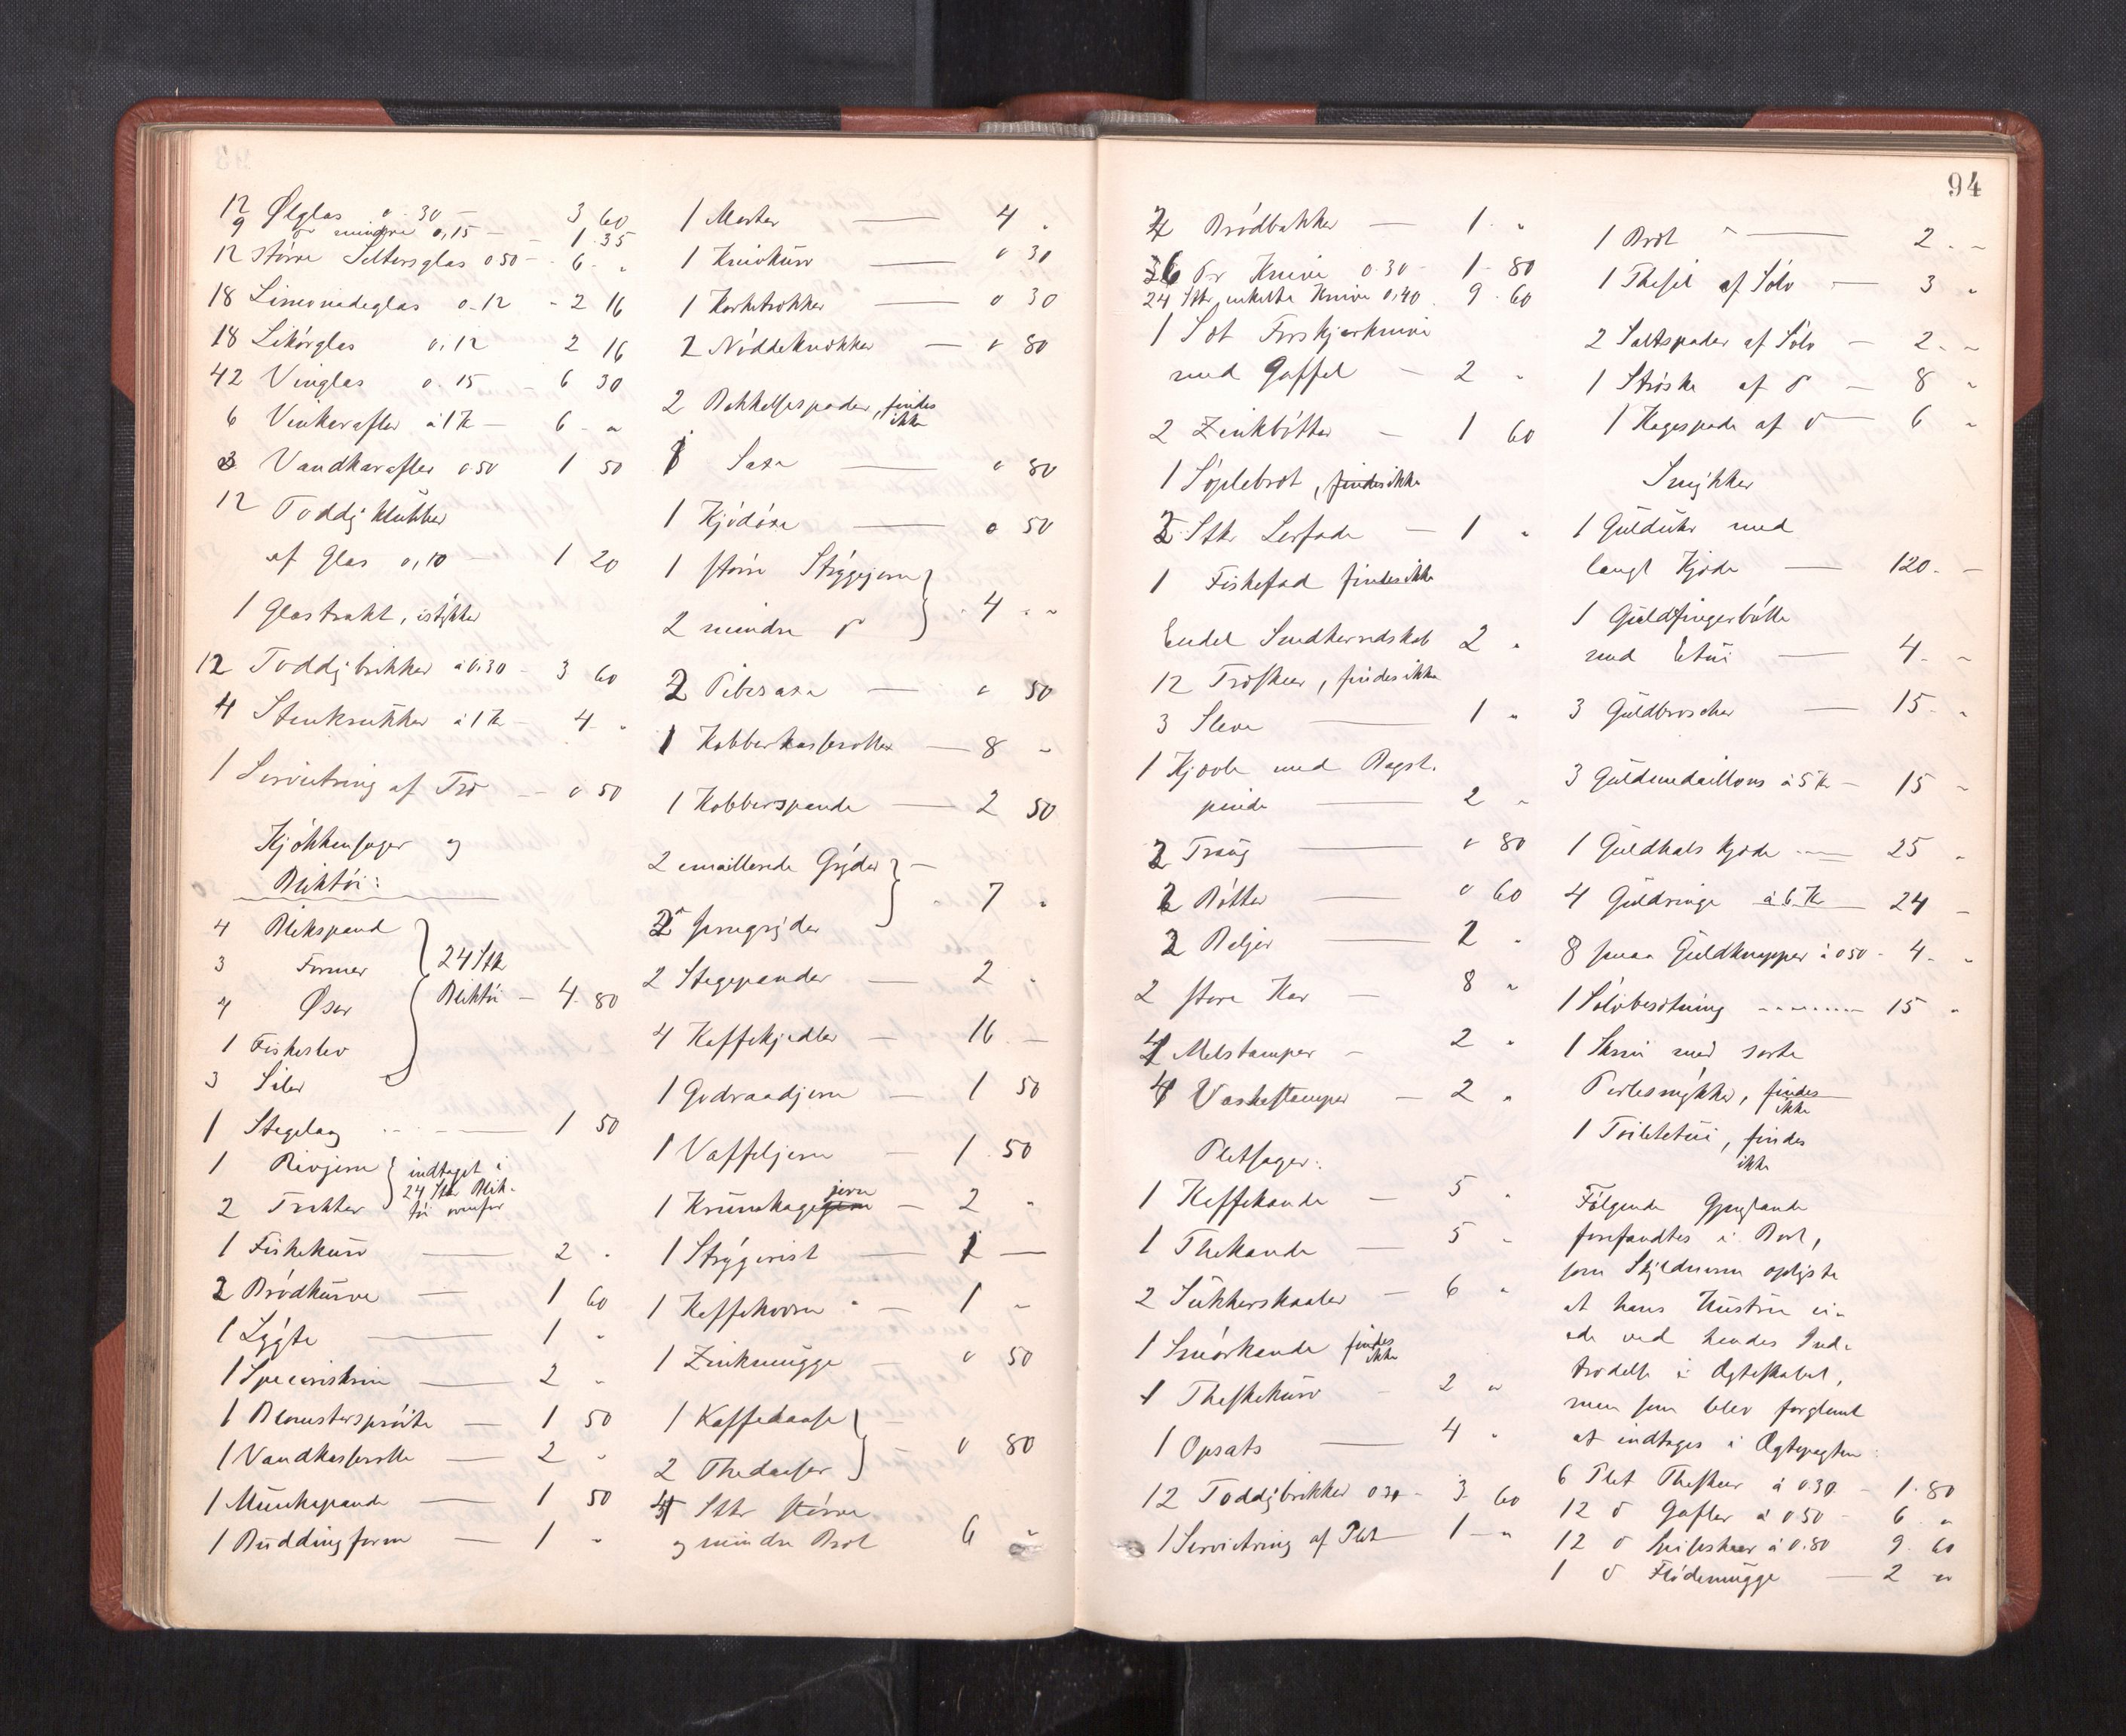 12 Ølglas 0.30 — 3 60
9 do mindre 0,15 — 1.35
12 større Seltersglas 0 50 — 6. "
18 Limonadeglas 0.12 - 2 16
18 Likørglas 0.12 2 16
42 Vinglas 0.15 - 6 30
6 Vinkarafler à 1 Kr — 6 - "
3 Vandkarafler 0 50 1 50
12 Toddyklubber
af Glas 0,10 — 1 20
1 Glastrakt, istykker
12 Toddybrikker à 0.30 - 3 60
4 Stenkrukker à 1 Kr - 4 - "
1 Servietring af Træ — 0 50
Kjøkkensager og
Bliktøi:
4 Blikspand
3 Former
4 Øser
1 Fiskeslev
3 Siler
24 Stk
Bliktøi — 4. 80
1 Stegelaag — 1 50
1 Rivjern
2 Trakter
indtaget i
24 Stk Blik-
tøi ovenfor
1 Fiskekurv — 2 "
2 Brødkurve — 1 60
1 Lygte — 1 "
1 Speceriskrin — 2 "
1 Blomstersprøite — 1 50
1 Vandkasserolle — 2 "
1 Munkepande — 1 50
1 Buddingform — 1 "
1 Morter — 4 "
1 Knivkurv — 0 30
1 Korketrækker — 0 30
2 Nøddeknækker — 0 80
2 Bakkelsespader, findes
ikke
1 Saxe — 0 80
1 Kjødøxe — 0 50
1 større Strygejern
2 mindre do
4 "
2 Pibesaxe — 0 50
1 Kobberkasserolle — 8 "
1 Kobberspande — 2 50
2 emaillerede Gryder
2 Jerngryder
7 "
2 Stegepander — 2 "
4 Kaffekjedler — 16 —
1 Godraadjern — 1 50
1 Vaffeljern — 1 50
1 Krumkagejern — 2 "
1 Strygerist — 1 —
1 Kaffekværn — 1 "
1 Zinkmugge — 0 50
1 Kaffedaase
2 Thedaaser
0 80
4 Stkr større
og mindre Bret 6 "
94
2 Brødbakker — 1. "
6 Pr Knive 0.30 — 1 - 80
24 Stk enkelte Knive 0,40. 9. 60
1 Sæt Forskjærknive
med Gaffel — 2 "
2 Zinkbøtter — 1 60
1 Søplebret, findes ikke
2 Stkr Lerfade — 1 "
1 Fiskefad findes ikke
Endel Smedkeredskab 2 "
12 Træskeer, findes ikke
3 Sleve — 1 "
1 Kjævle med Bagst.
pinde — 2 "
2 Traug — 0 80
2 Bøtter — 0 60
2 Baljer — 2 "
2 store Kar — 8 "
4 Melstamper — 2 "
4 Vaskestamper — 2 "
Pletsager:
1 Kaffekande — 5 "
1 Thekande — 5 "
2 Sukkerskaaler — 6 "
1 Smørkande findes
ikke
1 Theskekurv — 2 "
1 Opsats — 4 "
12 Toddybrikker 0 30 - 3 60
1 Servietring af Plet — 1 — "
1 Bret — 2. -
1 Thesil af Sølv — 3 "
2 Saltspader af Sølv — 2. -
1 Strøske af do — 8 "
1 Kagespade af do — 6 "
Smykker
1 Guldur med
langt Kjæde — 120. —
1 Guldfingerbølle
med Etui — 4. -
3 Guldbrocher — 15. "
3 Guldmedaillons à 5 Kr — 15 "
1 Guldhalskjæde — 25 "
4 Guldringe à 6 Kr — 24 -
8 smaa Guldknapper à 0 50 - 4. "
1 Sølvbesætning — 15 "
1 Skrin med sorte
Perlesmykker, findes
ikke
1 Toiletetui, findes
ikke
Følgende Gjenstande
forefandtes i Boet,
som Skyldneren oplyste
at hans Hustru ei-
ede ved hendes Ind-
trædelse i Ægteskabet,
men som blev forglemt
at indtages i Ægtepagten:
6 Plet Theskeer à 0.30 — 1. 80
12 do Gafler à 0 50 — 6. "
12 do Spiseskeer à 0.80 9. 60
1 do Flødemugge — 2 "